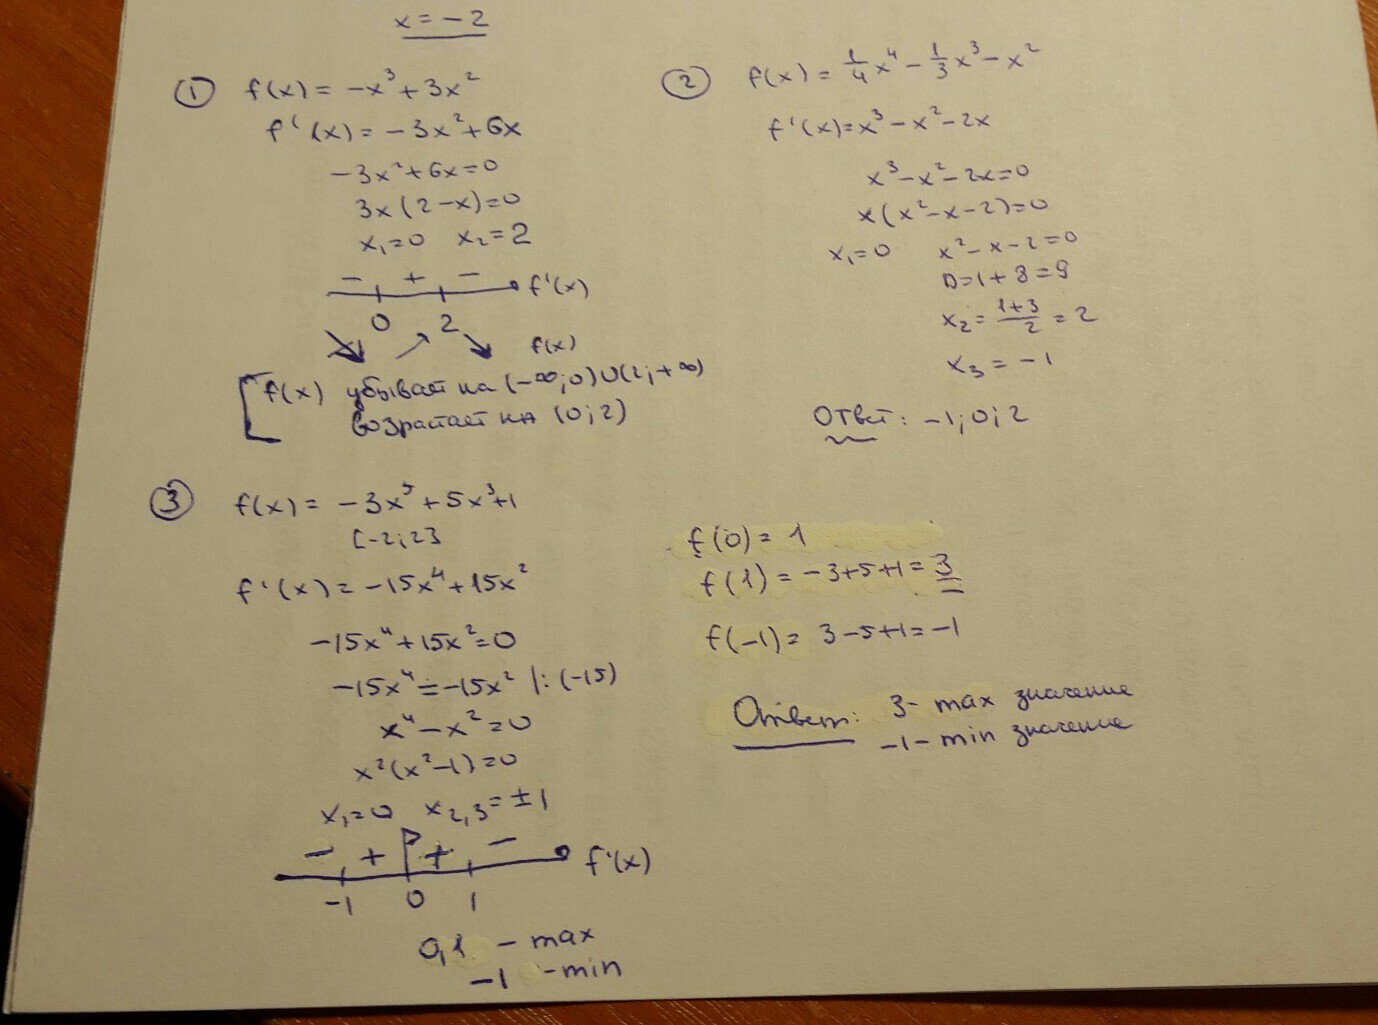 x = - 2
① f(x) = -x³ + 3x²
f'(x) = -3x² + 6x
-3x² + 6x = 0
3x(2-x) = 0
x₁ = 0 x₂ = 2
- + - f'(x)
0 2
f(x)
f(x) убывает на (-∞;0)∪(2;+∞)
возрастает на (0;2)
② f(x) = 1/4 x⁴ - 1/3 x³ - x²
f'(x) = x³ - x² - 2x
x³ - x² - 2x = 0
x(x² - x - 2) = 0
x₁ = 0 x² - x - 2 = 0
D = 1 + 8 = 9
x₂ = (1+3)/2 = 2
x₃ = -1
Ответ: -1; 0; 2
③ f(x) = -3x⁵ + 5x³ + 1
[-2; 2]
f'(x) = -15x⁴ + 15x²
-15x⁴ + 15x² = 0
-15x⁴ = -15x² |: (-15)
x⁴ - x² = 0
x²(x² - 1) = 0
x₁ = 0 x₂,₃ = ±1
- + + - f'(x)
-1 0 1
0, 1 - max
-1 - min
f(0) = 1
f(1) = -3+5+1 = 3
f(-1) = 3-5+1 = -1
Ответ: 3 - max значение
-1 - min значение